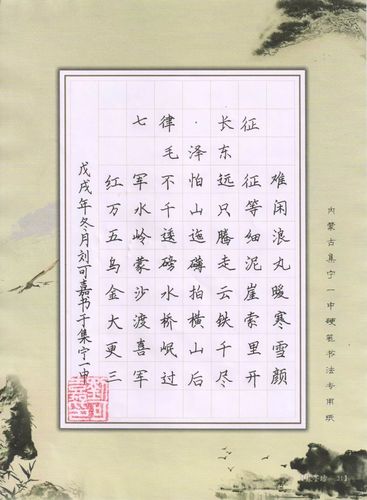 七律·长征
毛泽东
红军不怕远征难
万水千山只等闲
五岭逶迤腾细浪
乌蒙磅礴走泥丸
金沙水拍云崖暖
大渡桥横铁索寒
更喜岷山千里雪
三军过后尽开颜
戊戌年冬月刘可嘉书于集宁一中
内蒙古集宁一中硬笔书法专用纸